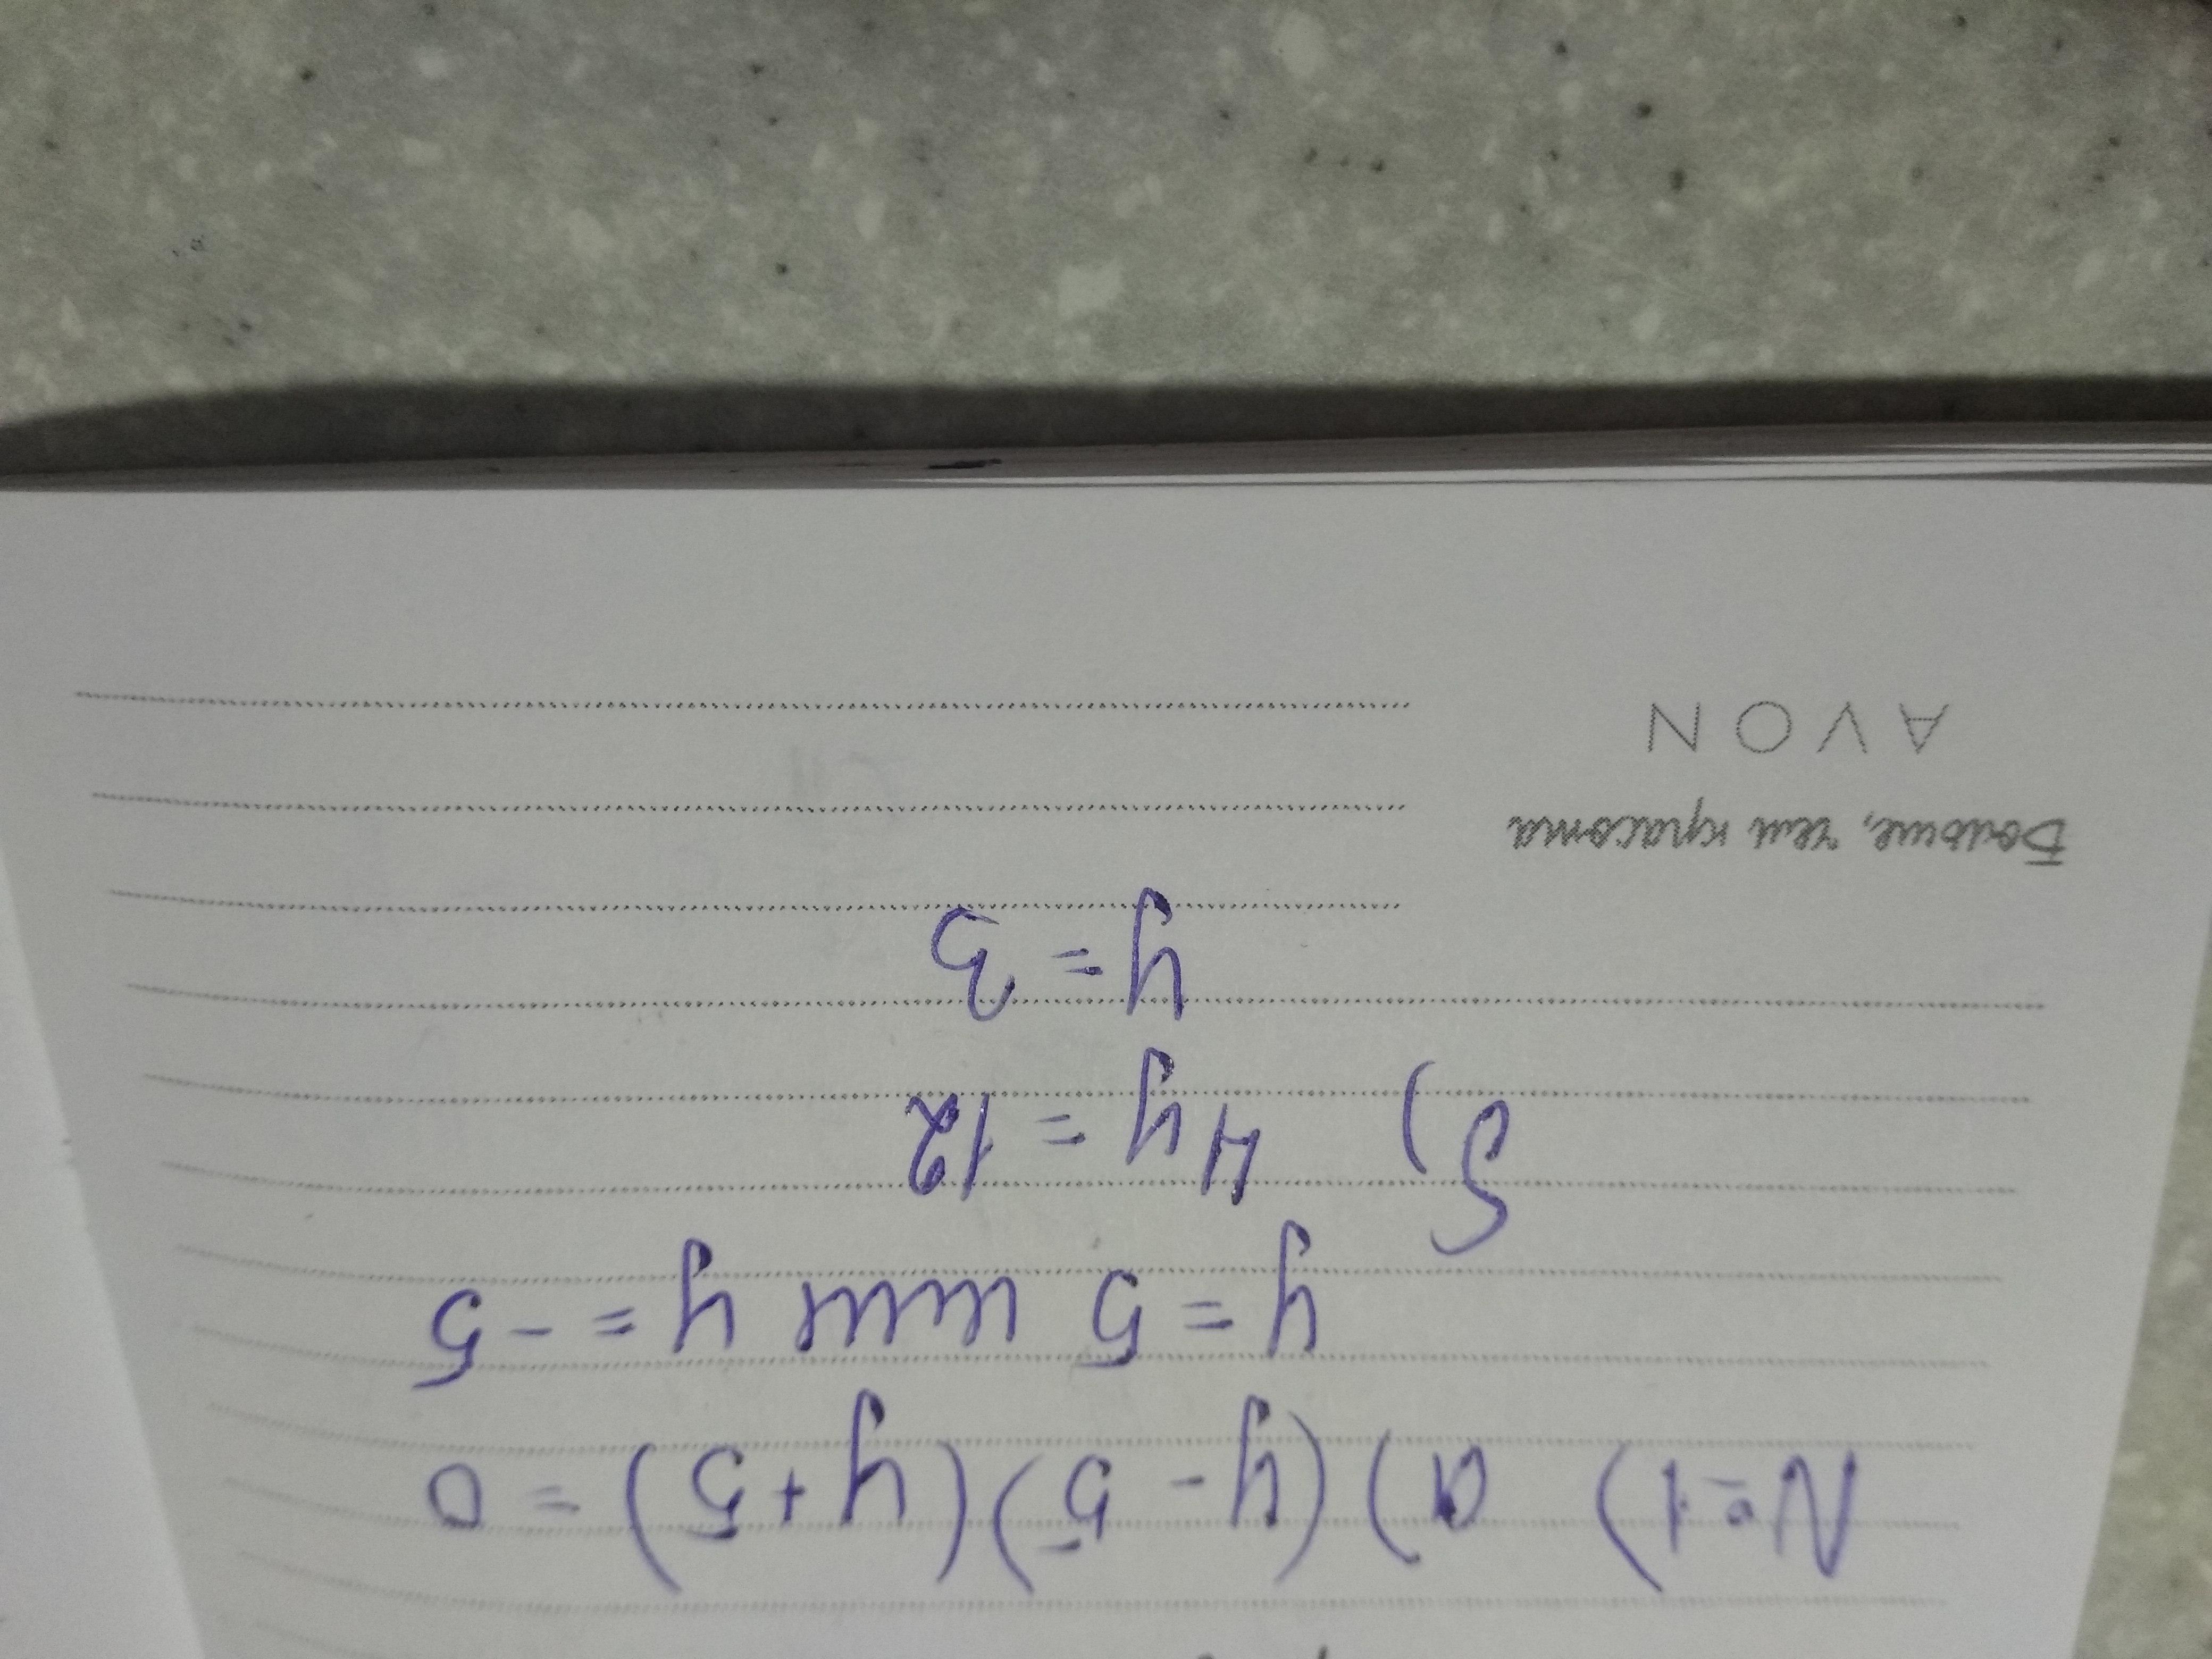 №1) а) (y - 5)(y + 5) = 0
y = 5 или y = -5
б) 4y = 12
y = 3
Больше, чем красота
AVON